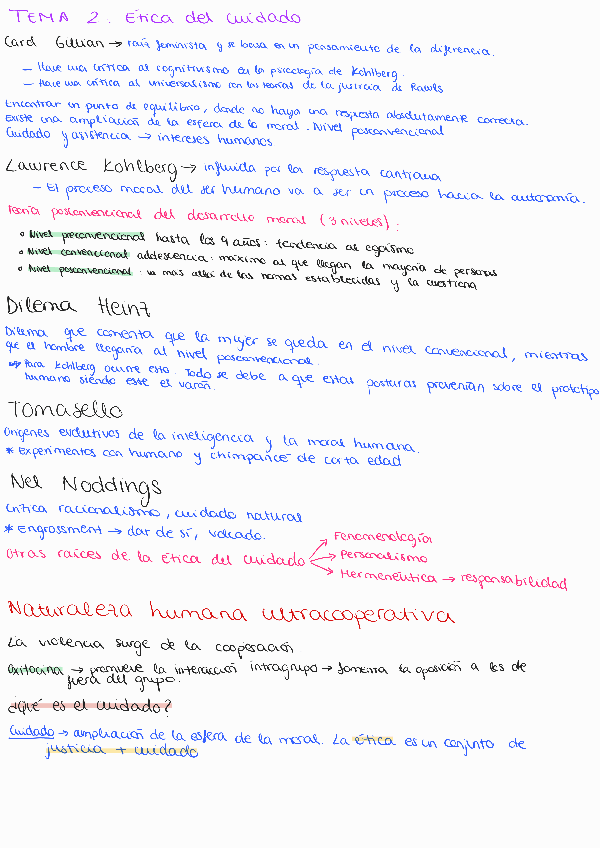 TEMA 2. Ética del cuidado
Carol Gillian → raíz feminista y se basa en un pensamiento de la diferencia.
– Hace una crítica al cognitivismo en la psicología de Kohlberg.
– Hace una crítica al universalismo con las teorías de la justicia de Rawls
Encontrar un punto de equilibrio, donde no haya una respuesta absolutamente correcta.
Existe una ampliación de la esfera de lo moral. Nivel posconvencional
Cuidado y asistencia → intereses humanos
Lawrence Kohlberg → influida por la respuesta kantiana
– El proceso moral del ser humano va a ser un proceso hacia la autonomía.
Teoría posconvencional del desarrollo moral (3 niveles):
• Nivel preconvencional hasta los 9 años: tendencia al egoísmo
• Nivel convencional adolescencia: máximo al que llegan la mayoría de personas
• Nivel posconvencional: va más allá de las normas establecidas y la cuestiona
Dilema Heinz
Dilema que comenta que la mujer se queda en el nivel convencional, mientras
que el hombre llegaría al nivel posconvencional.
⇒ Para Kohlberg ocurre esto. Todo se debe a que estas posturas prevenían sobre el prototipo
humano siendo este el varón.
Tomasello
Orígenes evolutivos de la inteligencia y la moral humana.
* Experimentos con humano y chimpancé de corta edad
Nel Noddings
Crítica racionalismo, cuidado natural
* Engrossment → dar de sí, volcado.
Otras raíces de la ética del cuidado → Fenomenología
→ Personalismo
→ Hermenéutica → responsabilidad
Naturaleza humana ultracooperativa
La violencia surge de la cooperación
Oxitocina → promueve la interacción intragrupo → fomenta la oposición a los de
fuera del grupo.
¿Qué es el cuidado?
Cuidado → ampliación de la esfera de la moral. La ética es un conjunto de
justicia + cuidado